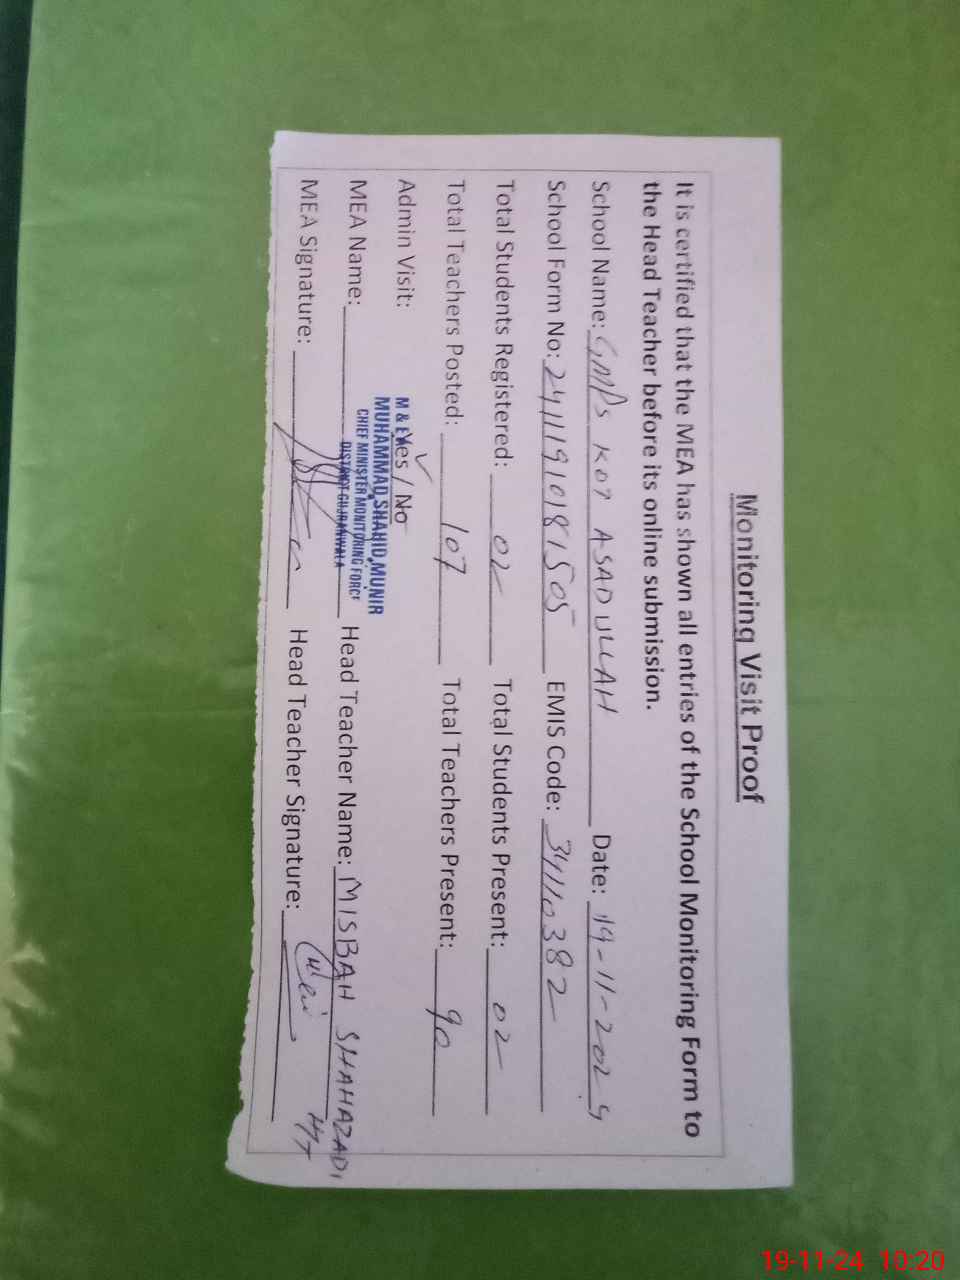 Monitoring Visit Proof
It is certified that the MEA has shown all entries of the School Monitoring Form to
the Head Teacher before its online submission.
School Name: GMPS KOT ASADULLAH Date: 19-11-2024
School Form No: 24111910181505 EMIS Code: 34110382
Total Students Registered: 02 Total Students Present: 02
Total Teachers Posted: 107 Total Teachers Present: 90
Admin Visit: Yes / No
M & E
MUHAMMAD SHAHID MUNIR
CHIEF MINISTER MONITORING FORCE
DISTRICT GUJRANWALA
MEA Name: Head Teacher Name: MISBAH SHAHAZADI
MEA Signature: Head Teacher Signature: HT
19-11-24 10:20